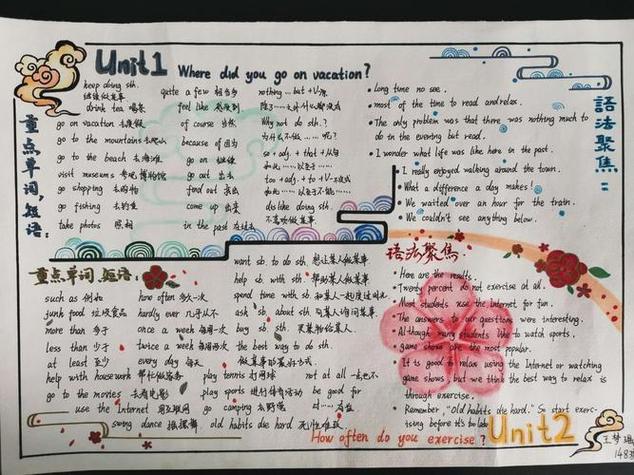 Unit1 Where did you go on vacation?
重点单词,短语:
keep doing sth.
继续做某事
drink tea 喝茶
go on vacation 去度假
go to the mountains 去爬山
go to the beach 去海滩
visit museums 参观博物馆
go shopping 去购物
go fishing 去钓鱼
take photos 照相
quite a few 相当多
feel like 感受到
of course 当然
because of 因为
go on 继续
go out 出去
find out 找出
come up 出来
in the past 在过去
nothing ... but + V.原
除了……之外什么都没有
Why not do sth.?
为什么不做……呢?
so + adj. + that + 从句
如此……以至于……
too + adj. + to + V
如此……以至于不能……
dislike doing sth.
不喜欢做某事
语法聚焦:
Long time no see.
most of the time to read and relax.
The only problem was that there was nothing much to
do in the evening but read.
I wonder what life was like here in the past.
I really enjoyed walking around the town.
What a difference a day makes!
We waited over an hour for the train.
We couldn't see anything below.
重点单词,短语:
such as 例如
junk food 垃圾食品
more than 多于
less than 少于
at least 至少
help with housework 帮忙做家务
go to the movies 去看电影
use the Internet 用互联网
swing dance 摇摆舞
how often 多久一次
hardly ever 几乎从不
once a week 每周一次
twice a week 每周两次
every day 每天
play tennis 打网球
play sports 进行体育活动
go camping 去野营
old habits die hard
want sb. to do sth. 想让某人做某事
help sb. with sth. 帮助某人做某事
spend time with sb. 和某人一起度过时光
ask sb. about sth. 向某人询问某事
buy sb. sth. 买某物给某人
the best way to do sth.
做某事的最好方式
not at all 一点也不
be good for
对……有益
语法聚焦
Here are the results.
Twenty percent do not exercise at all.
Most students use the Internet for fun.
The answers to our questions were interesting.
Although many students like to watch sports,
game shows are the most popular.
It is good to relax using the Internet or watching
game shows, but we think the best way to relax is
through exercise.
Remember, "Old habits die hard." So start exerc-
ising before it's too late
How often do you exercise?
Unit2